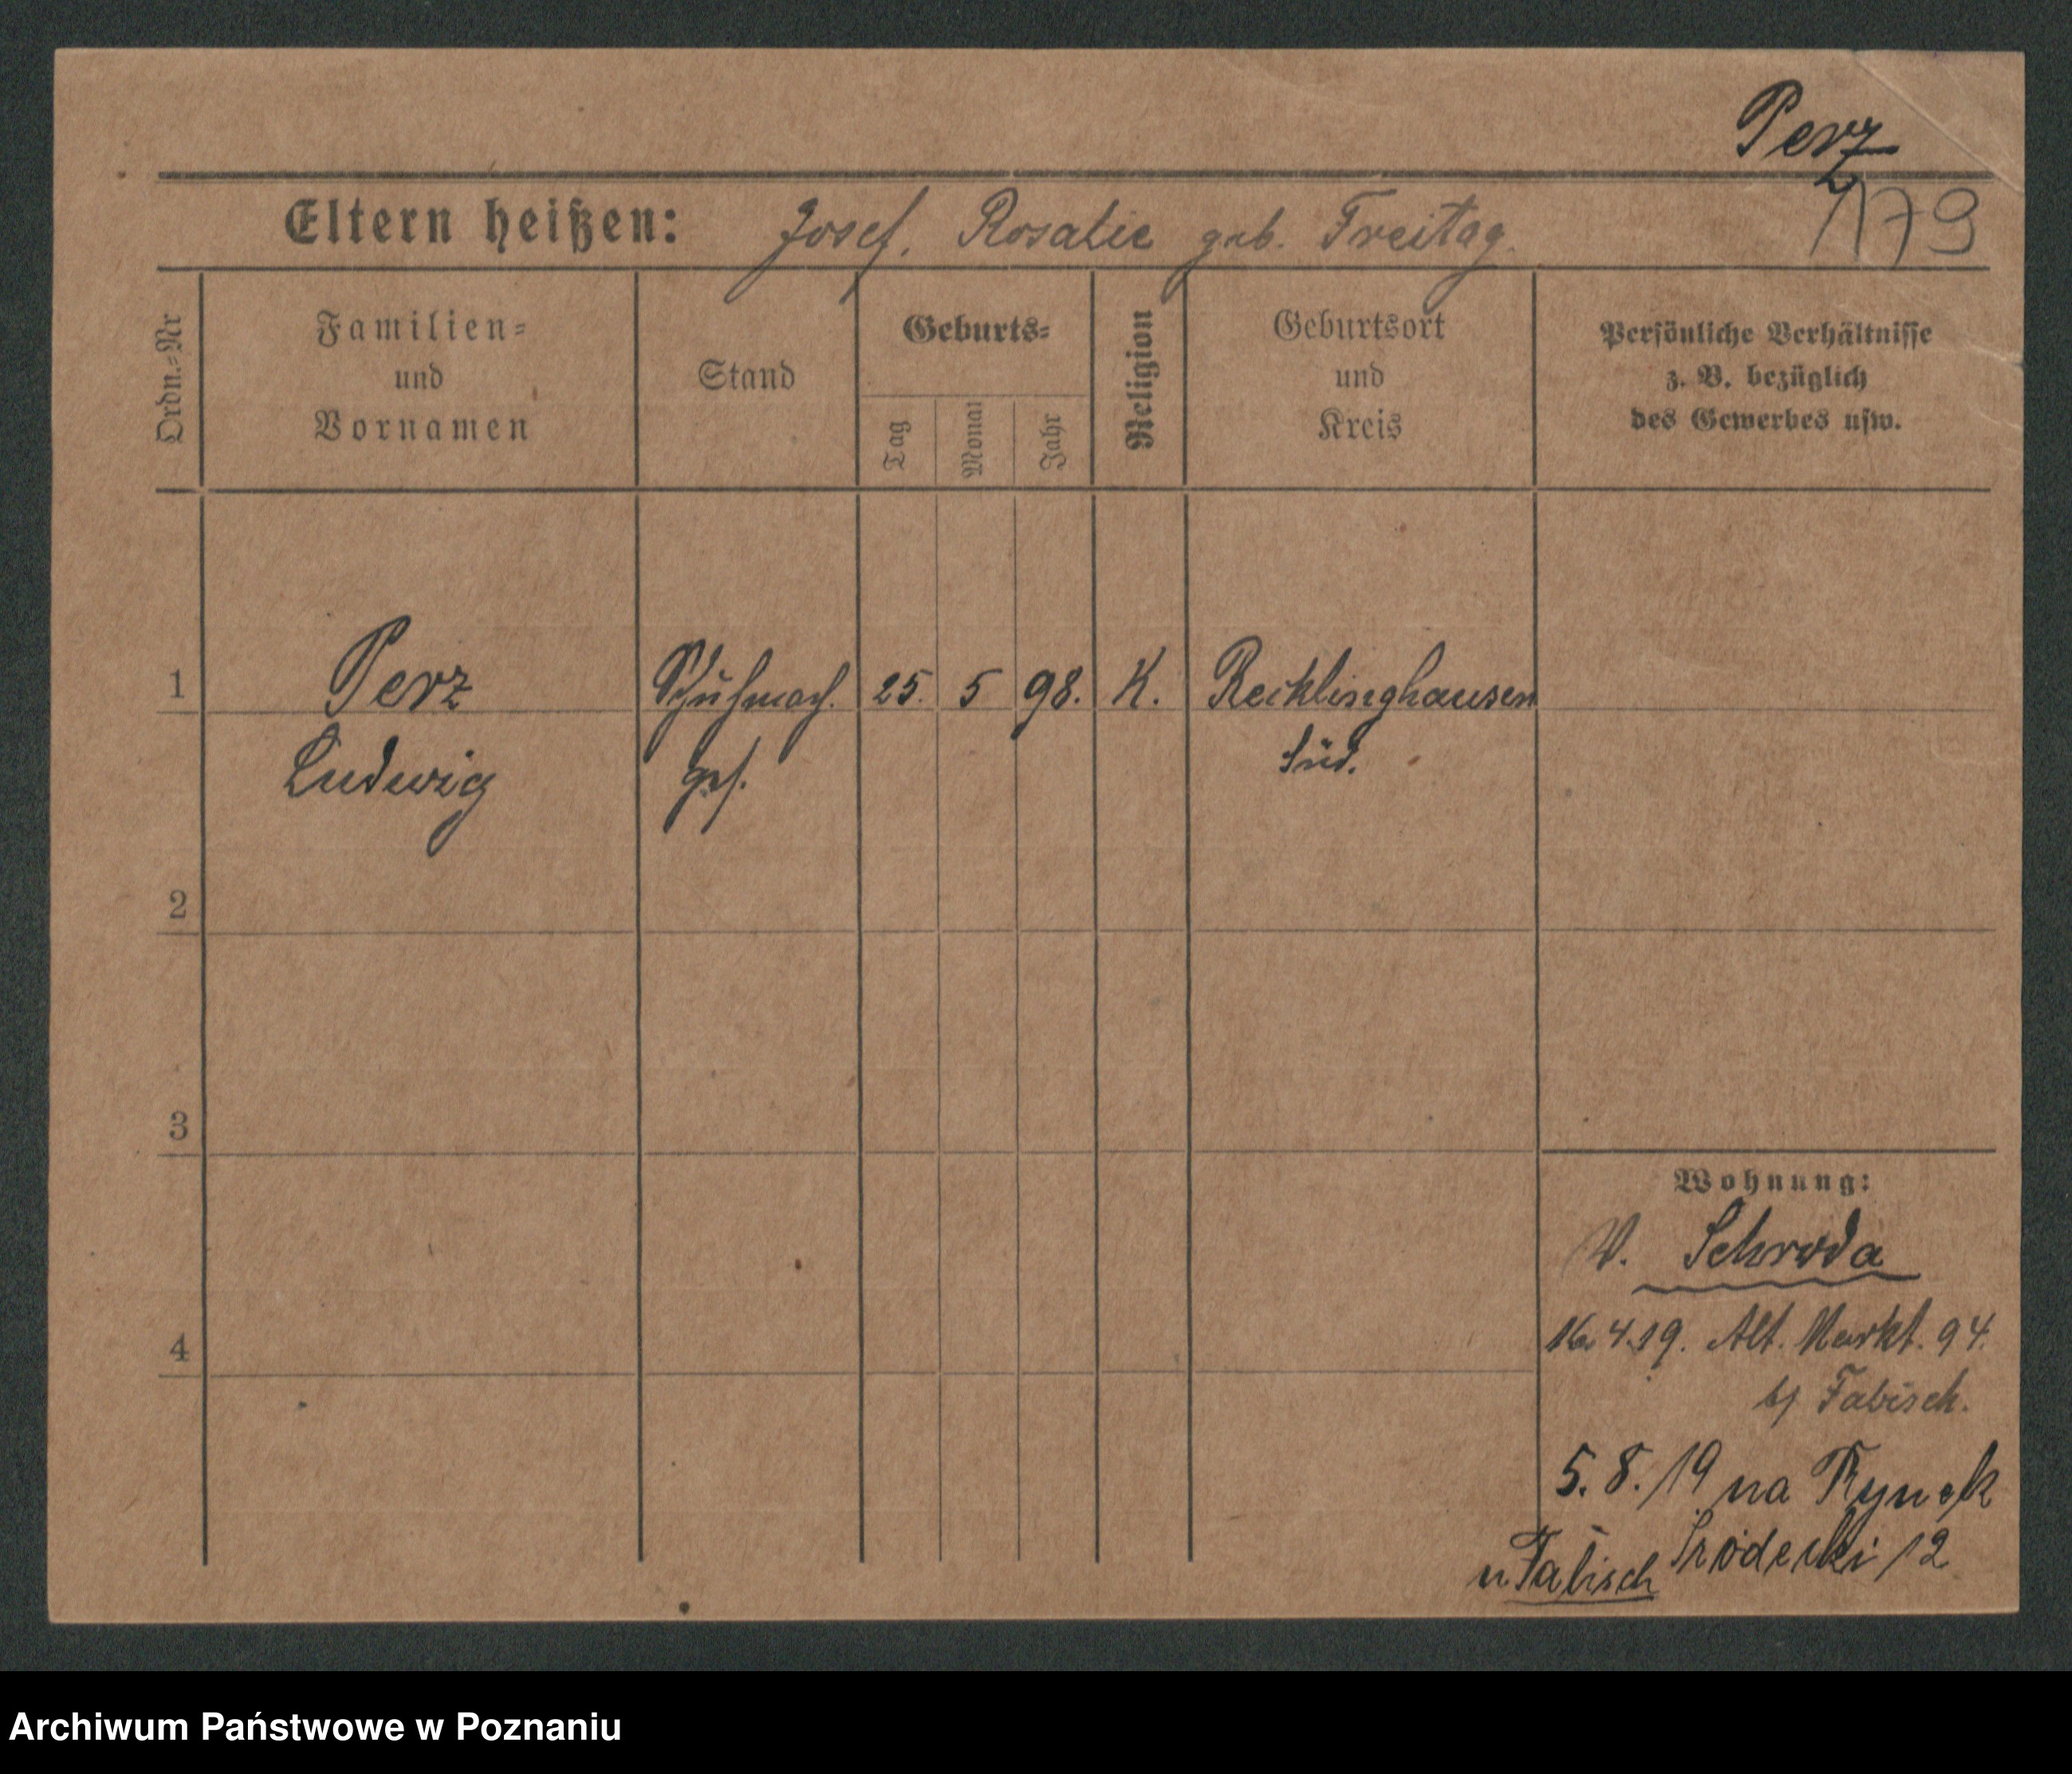 Perz
179
Eltern heißen: Josef, Rosalie geb. Freitag.
Ordn.-Nr
Familien-
und
Vornamen
Stand
Geburts-
Tag
Monat
Jahr
Religion
Geburtsort
und
Kreis
Persönliche Verhältnisse
z. B. bezüglich
des Gewerbes usw.
1 Perz Schuhmach. 25. 5 98. K. Recklinghausen
Ludwig ges. Süd.
2
3
Wohnung:
V. Schroda
4
16.4.19. Alt. Markt. 94.
b/ Fabisch.
5.8./19 na Rynek
Śródecki 12
u Fabisch
Archiwum Państwowe w Poznaniu